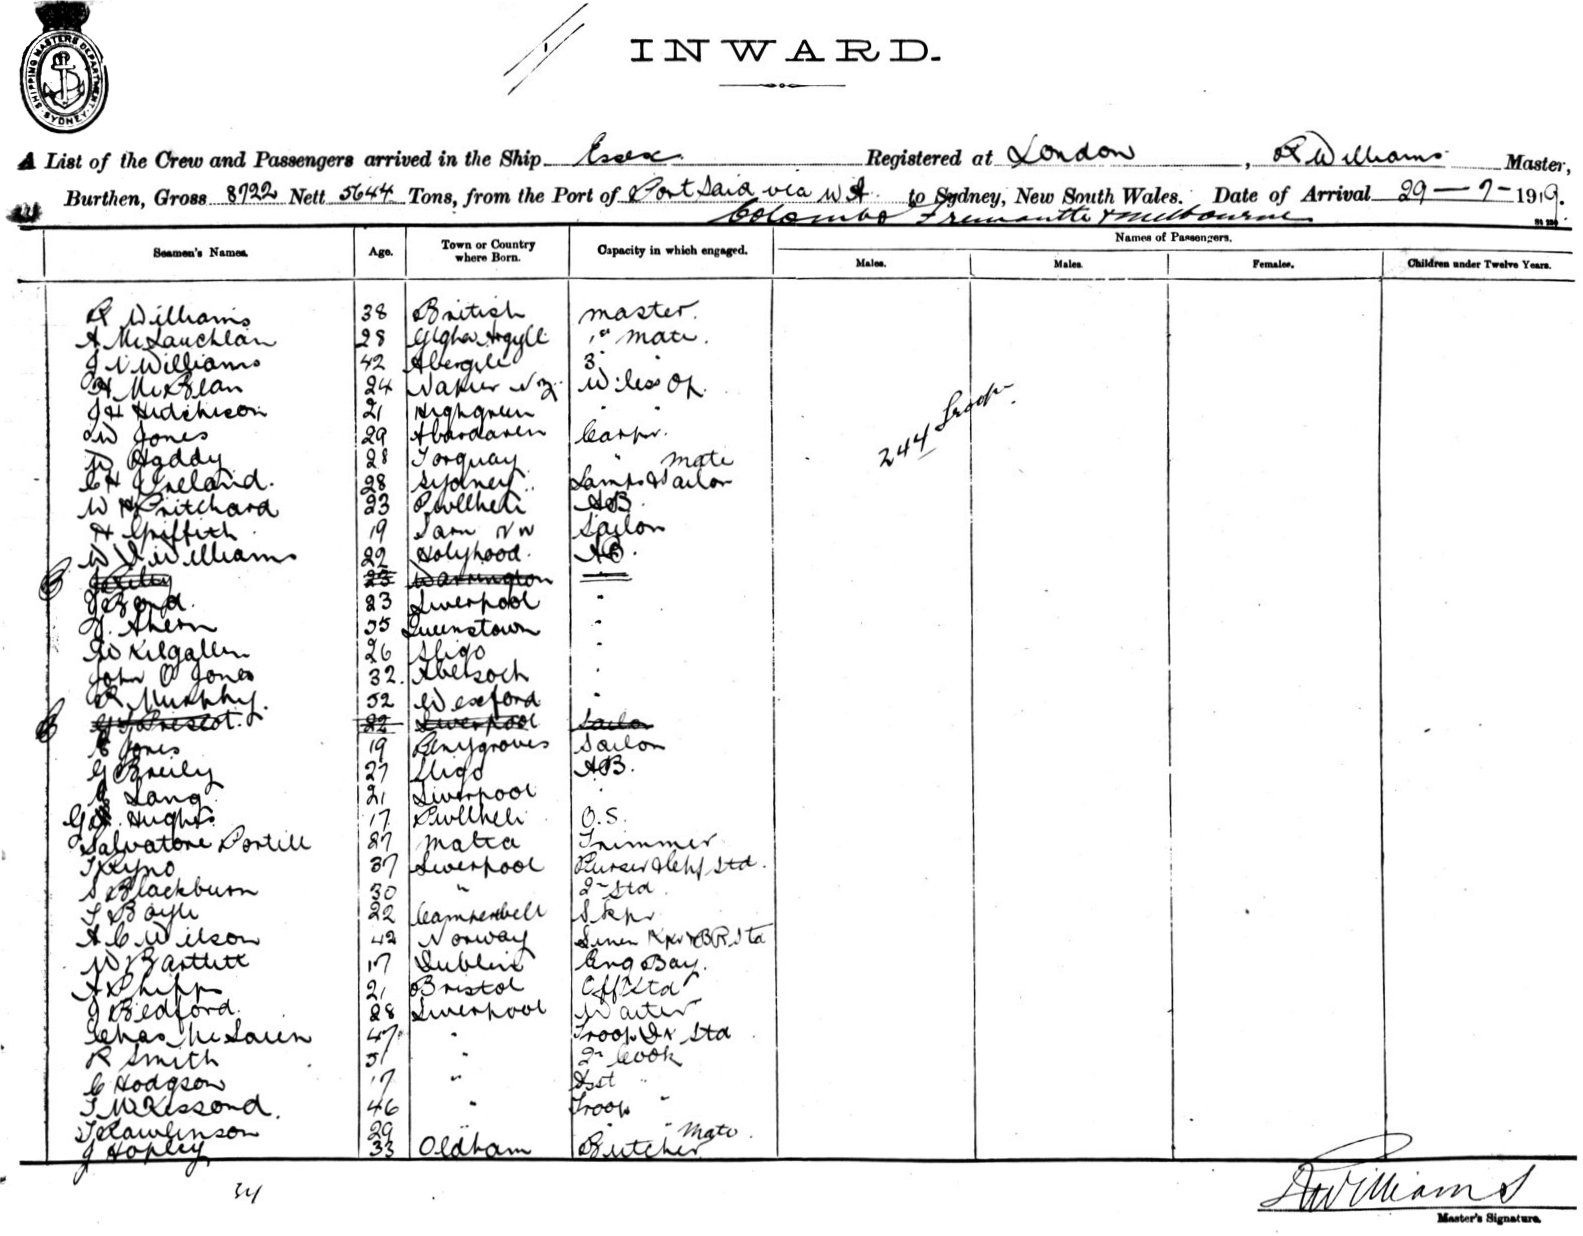 SHIPPING MASTERS DEPARTMENT SYDNEY
INWARD.
A List of the Crew and Passengers arrived in the Ship Essex Registered at London, R Williams Master,
Burthen, Gross 8722 Nett 5644 Tons, from the Port of Port Said via W A to Sydney, New South Wales. Date of Arrival 29-7-1919.
Colombo Fremantle & Melbourne
Names of Passengers.
Seamen's Names. Age. Town or Country where Born. Capacity in which engaged. Males. Males. Females. Children under Twelve Years.
R Williams 38 British master.
A McLauchlan 28 Argyll 1st mate.
J Williams 42 Abergele 3 "
H McBean 24 Napier NZ. W'less Op.
J H Hutchison 21 Highgreen " "
W Jones 29 Aberdaren Carpr.
W Hoddy 28 Torquay " mate
C H Ireland. 28 Sydney. Lamps & Sailor
W H Pritchard 23 Pwllheli AB.
H Griffith. 19 Sarn NW Sailor
W Williams 22 Holyhood. AB.
23 Warrington
J Bond. 23 Liverpool "
J. Ahern 55 Queenstown "
W Kilgallen 26 Sligo "
John O Jones 32. Abersoch "
R Murphy. 52 Wexford "
22 Liverpool Sailor
E Jones 19 Penygroves Sailor
G Breily 27 Sligo AB.
Lang 21 Liverpool "
G Hughes 17 Pwllheli O.S.
Salvatore Portill 27 Malta Trimmer
T Ryno 37 Liverpool Purser & Chf Std.
S Blackburn 30 " 2nd Std
T Boyle 22 Camperbell S. Kpr
A C Wilson 42 Norway Linen Kpr & BR Std
W Bartlett 17 Dublin Eng Boy.
A Phipps 21 Bristol Off Std
J Bedford. 28 Liverpool Waiter
Chas McLaren 47 " Troop Std
R Smith 51 " 2nd Cook
C Hodgson 17 " Asst "
T McKissond. 46 " Troop "
T Rawlinson 29 " " " mate.
J Hopley 33 Oldham Butcher
244 Troops.
34
R Williams
Master's Signature.